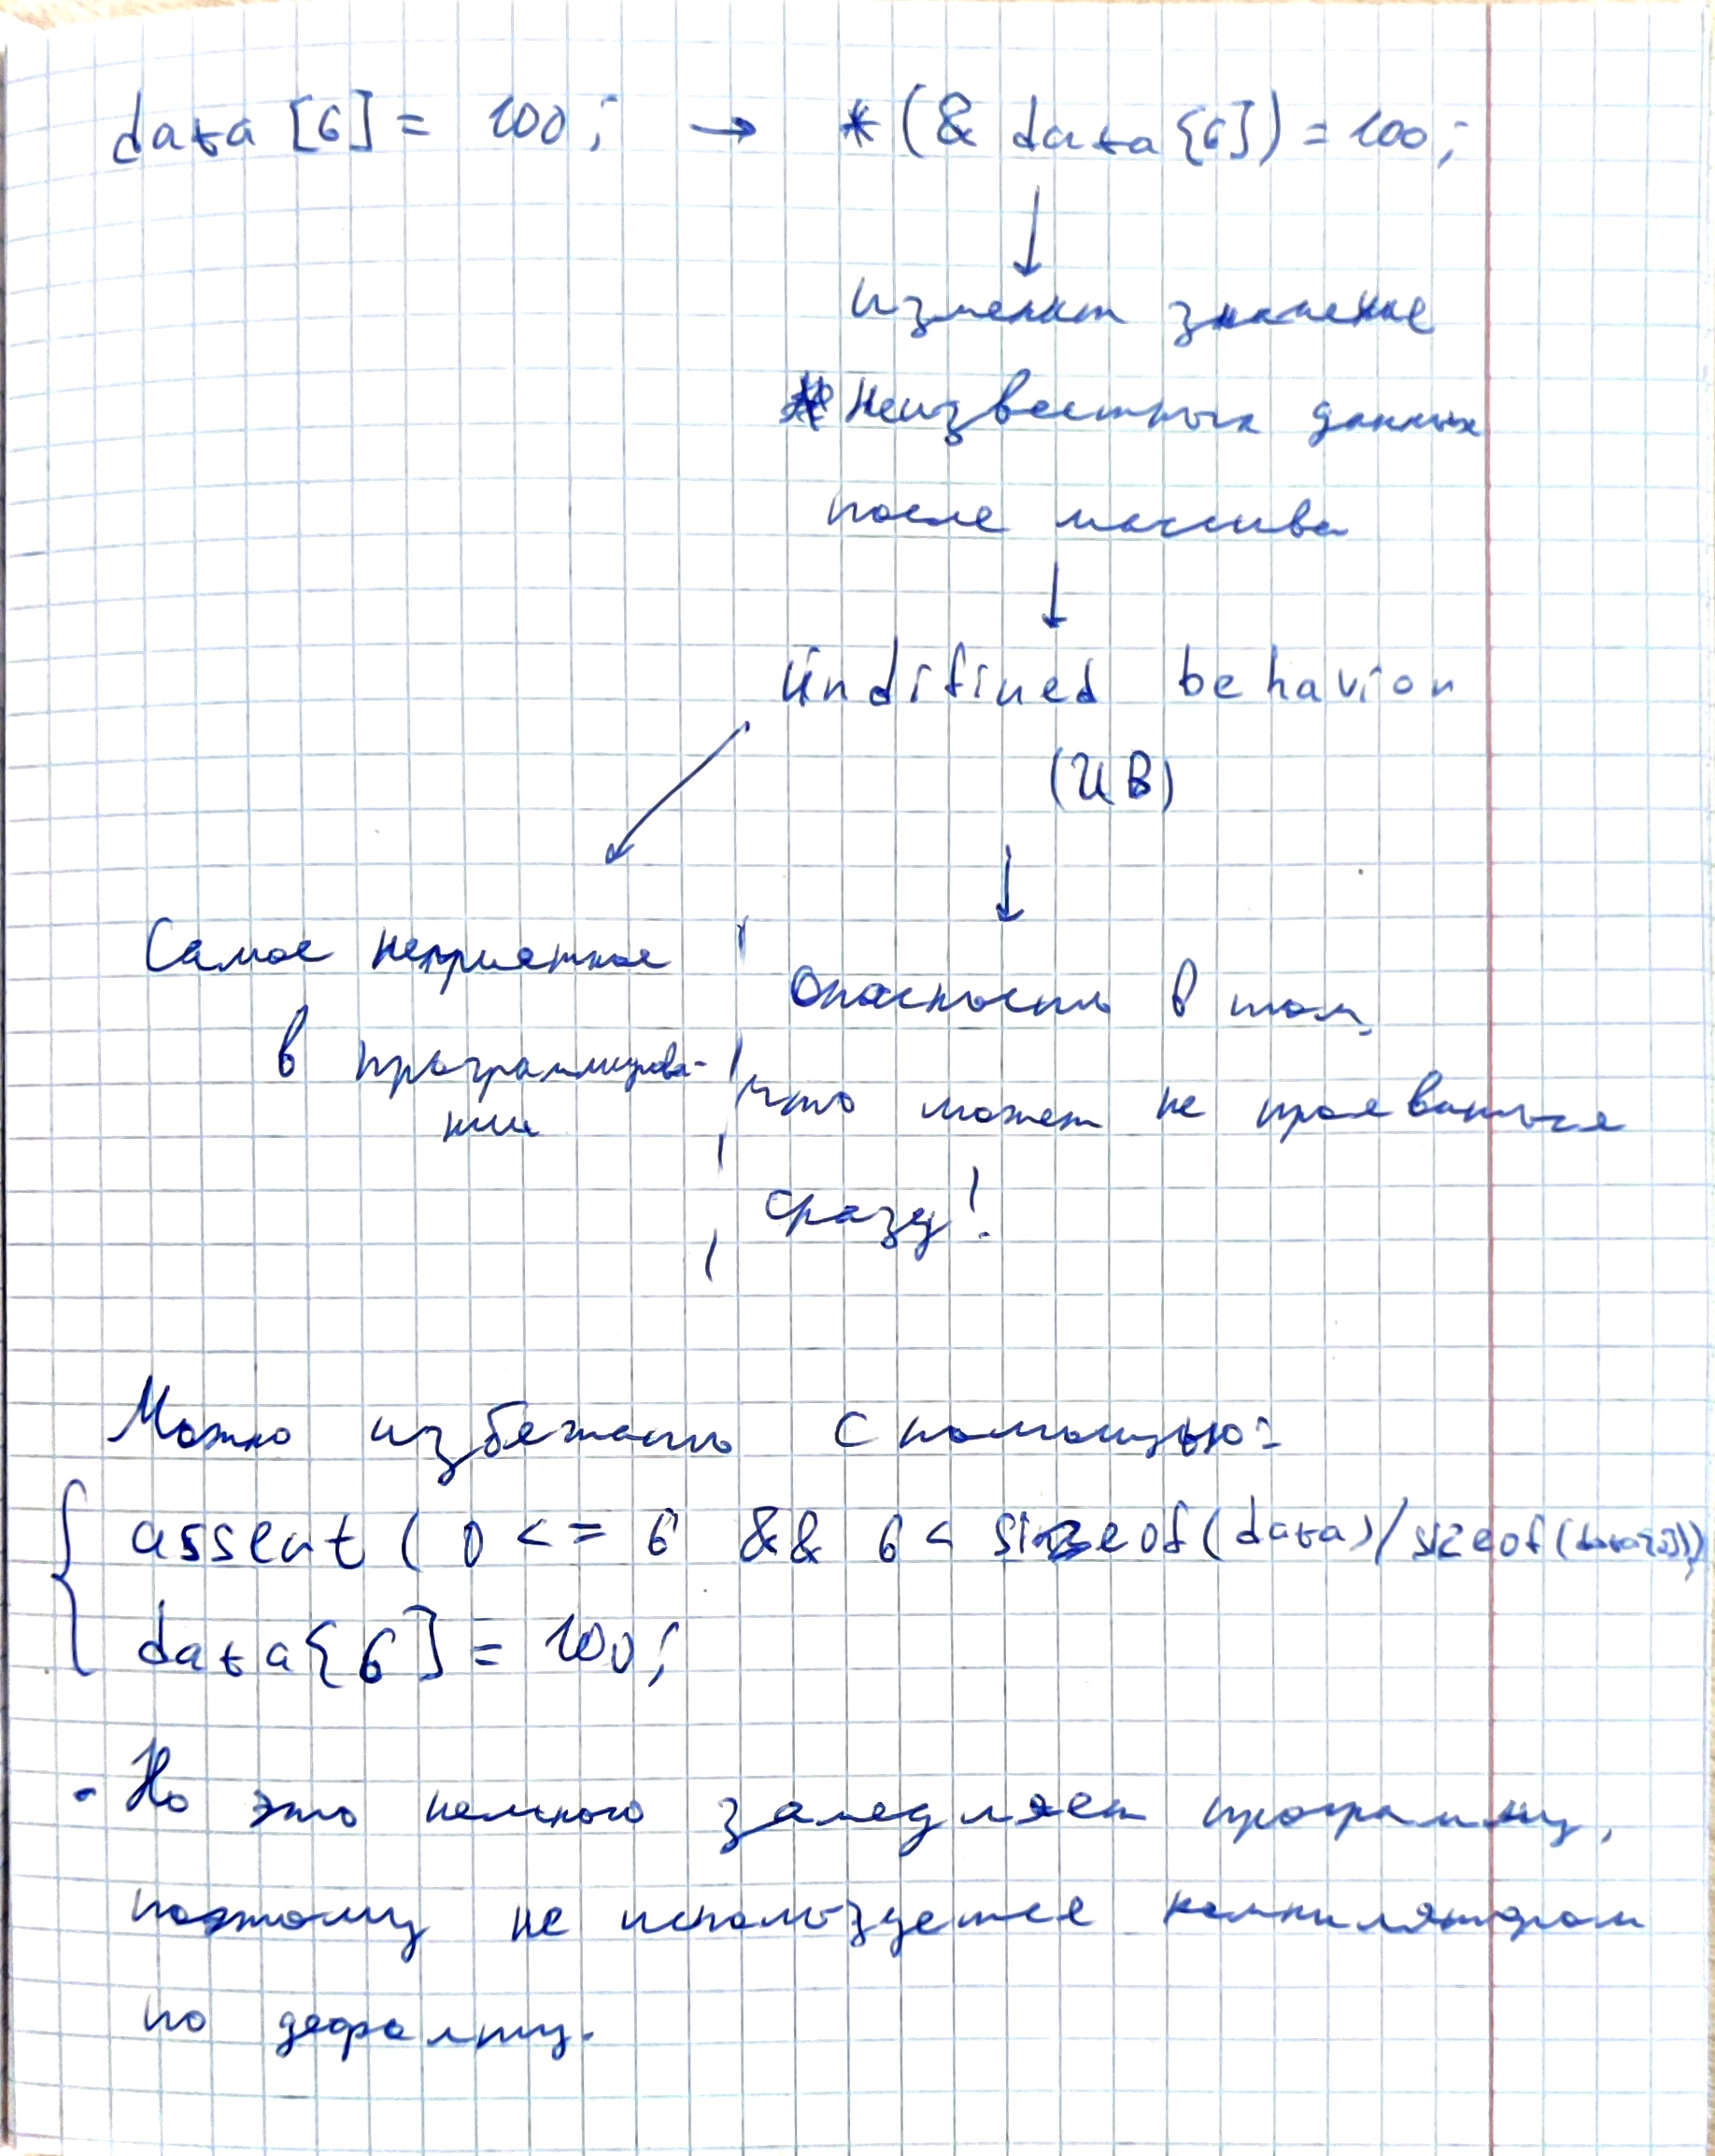 data [6] = 100; → *(& data[6]) = 100;
↓
изменит значение
неизвестных данных
после массива
↓
Undifined behavior
(UB)
↓
Самое неприятное
в программирова-
нии
Опасность в том,
что может не проявиться
сразу!
Можно избежать с помощью:
assert ( 0 <= 6 && 6 < sizeof(data)/sizeof(data[0]))
data[6] = 100;
- Но это немного замедляет программу,
поэтому не используется компилятором
по дефолту.